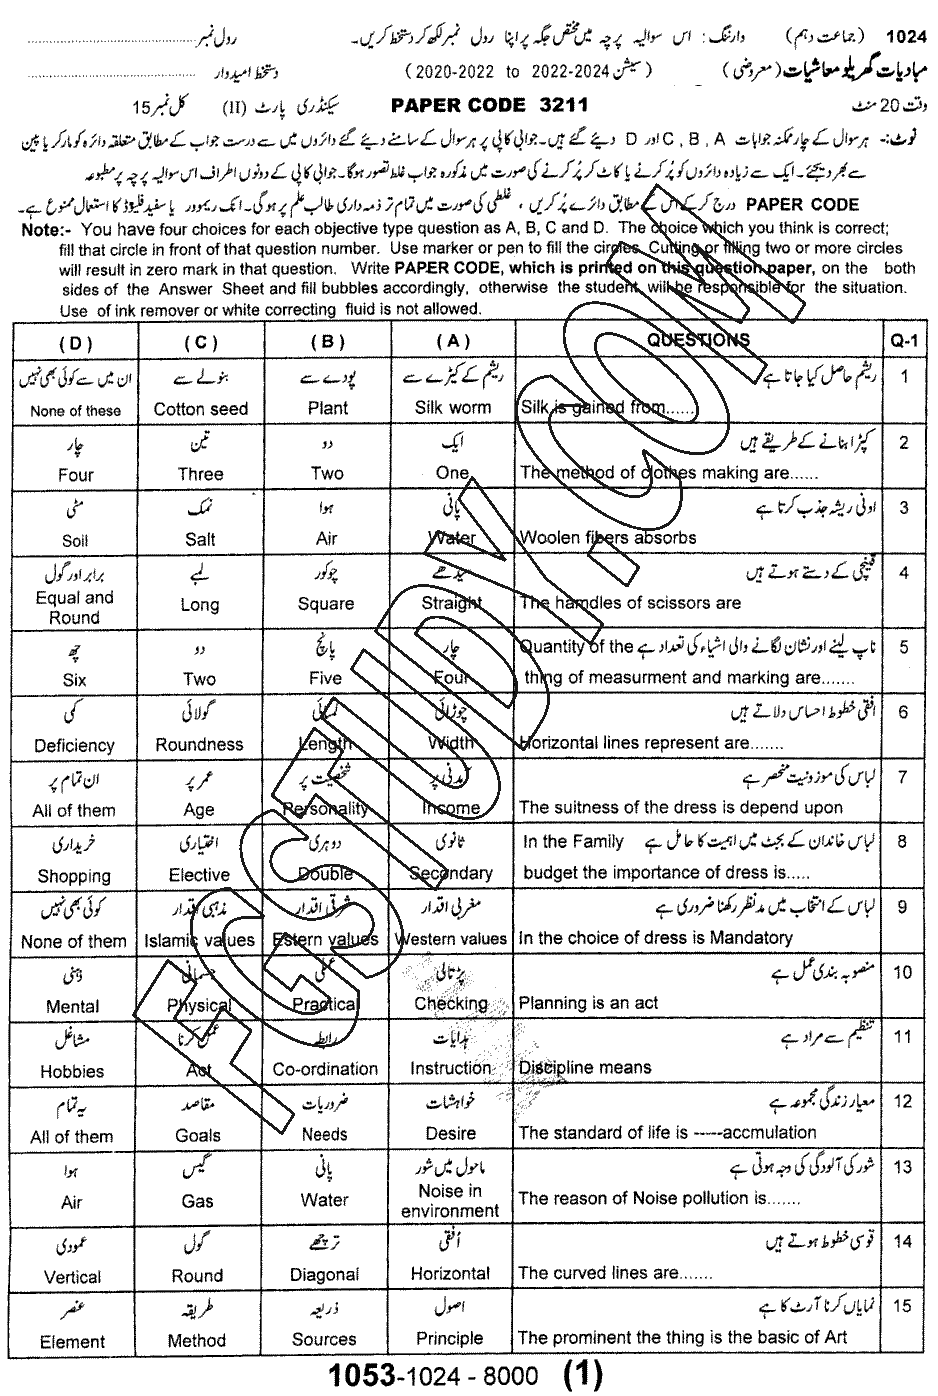 1024 (جماعت دہم) وارننگ: اس سوالیہ پرچہ میں مختص جگہ پر اپنا رول نمبر لکھ کر دستخط کریں۔ رول نمبر
مبادیات گھریلو معاشیات (معروضی) (سیشن 2020-2022 to 2022-2024) دستخط امیدوار
وقت 20 منٹ PAPER CODE 3211 سیکنڈری پارٹ (II) کل نمبر 15
نوٹ:- ہر سوال کے چار ممکنہ جوابات C , B , A اور D دیئے گئے ہیں۔ جوابی کاپی پر ہر سوال کے سامنے دیئے گئے دائروں میں سے درست جواب کے مطابق متعلقہ دائرہ کو مارکر یا پین
سے بھر دیجئے۔ ایک سے زیادہ دائروں کو پُر کرنے یا کاٹ کر پُر کرنے کی صورت میں مذکورہ جواب غلط تصور ہوگا۔ جوابی کاپی کے دونوں اطراف اس سوالیہ پرچہ پر مطبوعہ
PAPER CODE درج کر کے اس کے مطابق دائرے پُر کریں ، غلطی کی صورت میں تمام تر ذمہ داری طالب علم پر ہوگی۔ انک ریموور یا سفید فلیوڈ کا استعمال ممنوع ہے۔
Note:- You have four choices for each objective type question as A, B, C and D. The choice which you think is correct;
fill that circle in front of that question number. Use marker or pen to fill the circles. Cutting or filling two or more circles
will result in zero mark in that question. Write PAPER CODE, which is printed on this question paper, on the both
sides of the Answer Sheet and fill bubbles accordingly, otherwise the student will be responsible for the situation.
Use of ink remover or white correcting fluid is not allowed.
( D ) ( C ) ( B ) ( A ) QUESTIONS Q-1
ان میں سے کوئی بھی نہیں بنولے سے پودے سے ریشم کے کیڑے سے ریشم حاصل کیا جاتا ہے 1
None of these Cotton seed Plant Silk worm Silk is gained from......
چار تین دو ایک کپڑا بنانے کے طریقے ہیں 2
Four Three Two One The method of clothes making are......
مٹی نمک ہوا پانی اونی ریشہ جذب کرتا ہے 3
Soil Salt Air Water Woolen fibers absorbs
برابر اور گول لمبے چوکور سیدھے قینچی کے دستے ہوتے ہیں 4
Equal and Round Long Square Straight The hamdles of scissors are
چھ دو پانچ چار ناپ لینے اور نشان لگانے والی اشیاء کی تعداد ہے Quantity of the 5
Six Two Five Four thing of measurment and marking are.......
کمی گولائی لمبائی چوڑائی افقی خطوط احساس دلاتے ہیں 6
Deficiency Roundness Length Width Horizontal lines represent are.......
ان تمام پر عمر پر شخصیت پر آمدنی پر لباس کی موزونیت منحصر ہے 7
All of them Age Personality Income The suitness of the dress is depend upon
خریداری اختیاری دوہری ثانوی لباس خاندان کے بجٹ میں اہمیت کا حامل ہے In the Family 8
Shopping Elective Double Secondary budget the importance of dress is.....
کوئی بھی نہیں مذہبی اقدار شرقی اقدار مغربی اقدار لباس کے انتخاب میں مدنظر رکھنا ضروری ہے 9
None of them Islamic values Estern values Western values In the choice of dress is Mandatory
ذہنی جسمانی عملی پڑتالی منصوبہ بندی عمل ہے 10
Mental Physical Practical Checking Planning is an act
مشاغل عمل کرنا رابطہ ہدایات تنظیم سے مراد ہے 11
Hobbies Act Co-ordination Instruction Discipline means
یہ تمام مقاصد ضروریات خواہشات معیار زندگی مجموعہ ہے 12
All of them Goals Needs Desire The standard of life is -----accmulation
ہوا گیس پانی ماحول میں شور شور کی آلودگی کی وجہ ہوتی ہے 13
Air Gas Water Noise in environment The reason of Noise pollution is.......
عمودی گول ترچھے اُفقی قوسی خطوط ہوتے ہیں 14
Vertical Round Diagonal Horizontal The curved lines are.......
عنصر طریقہ ذریعہ اصول نمایاں کرنا آرٹ کا ہے 15
Element Method Sources Principle The prominent the thing is the basic of Art
1053-1024 - 8000 (1)
FGSTUDY.COM